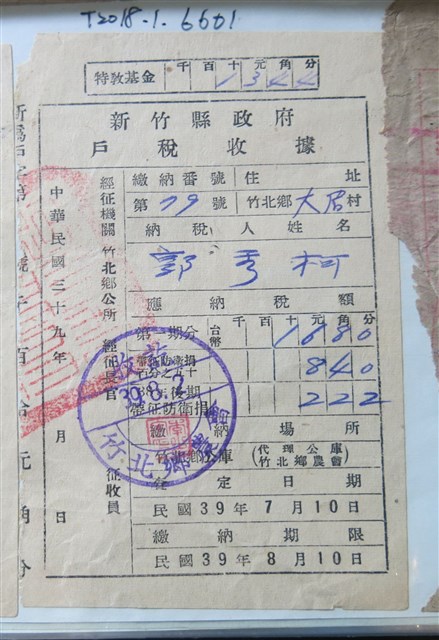 T2018.1.6601
特教基金 千百十元角分 1344
新竹縣政府
戶稅收據
繳納番號 住址
第79號 竹北鄉大眉村
納稅人姓名
郭秀柯
應納稅額
第 期分 台幣 千百十元角分 1680
840
後期
徵防衛捐 222
繳納場所
竹北鄉公庫 (代理公庫 竹北鄉農會)
定日期
民國39年7月10日
繳納期限
民國39年8月10日
經征機關 竹北鄉公所 經征長官 征收員
中華民國三十九年 月 日
39.8.
竹北鄉